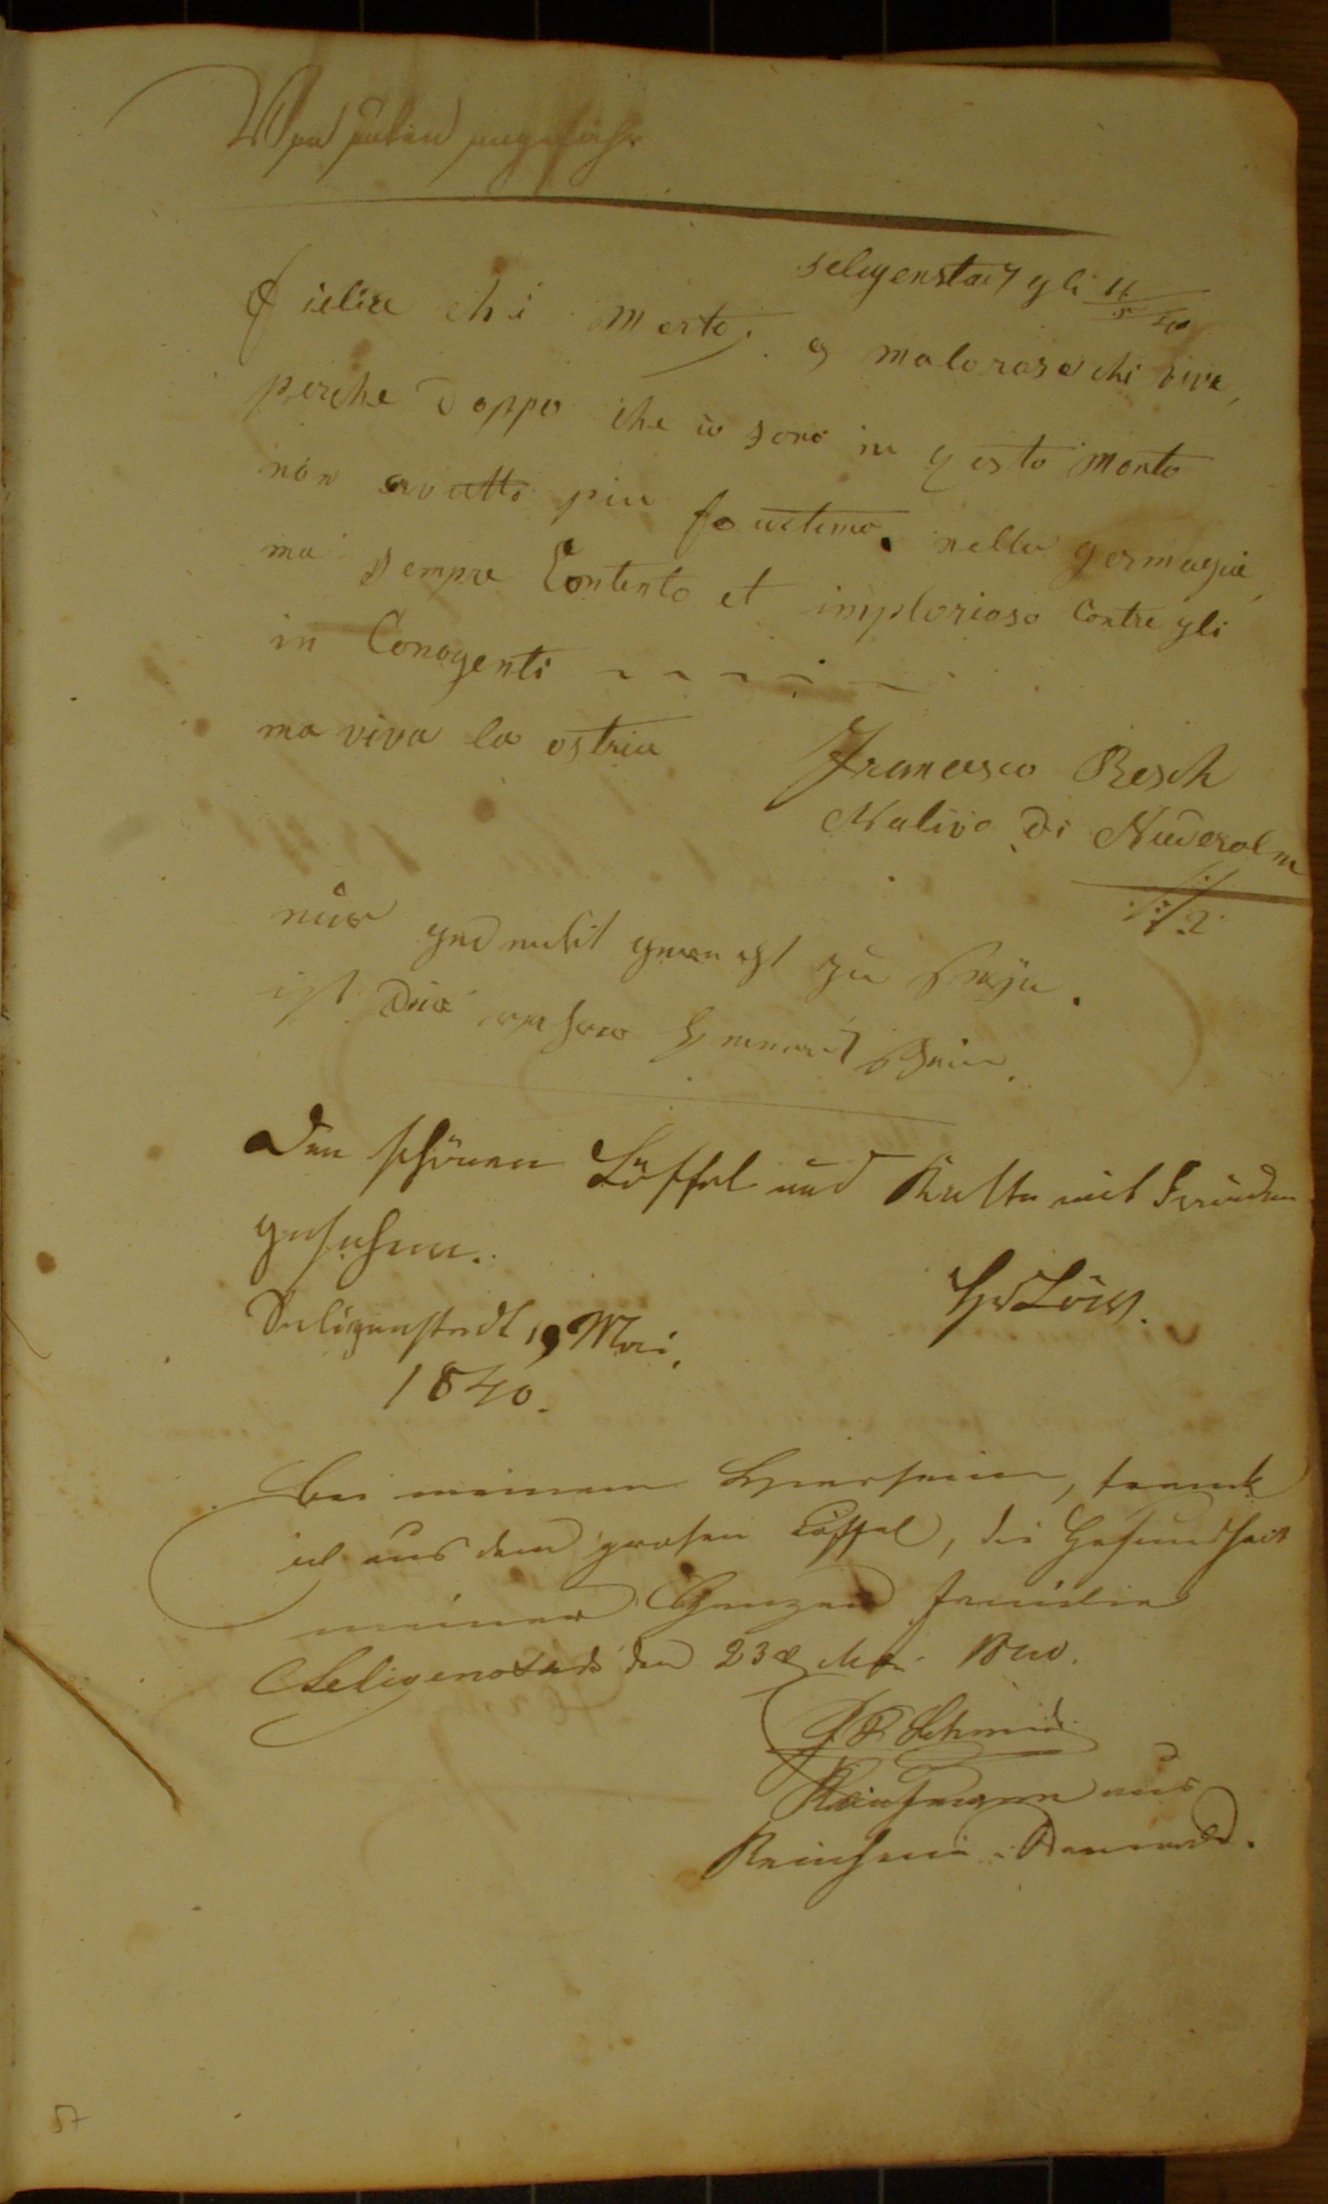 seligenstadt gli 16/5 40
Fielice chi Morto, e maloroso chi vive,
perche doppo che io sono in qesto Monto
non avutto piu fo nella germagnia,
ma sempre Contento et implorioso Contre gli
in Conogenti
ma viva la ostria
Francesco Besch
Nativo di Niederolm
nur gedenckt zu seyn.
ist die wahre
Den schönen Löffel und Kette mit Freuden
gesehen.
Löw.
Seligenstadt 19 Mai.
1840.
Bei meinem Hierseien, trank
ich aus dem grosen Löffel, die Gesundheit
meiner Ganzen Familie
Seligenstadt den 23t Mai 1840.
Schmidt
Kaufmann aus
57